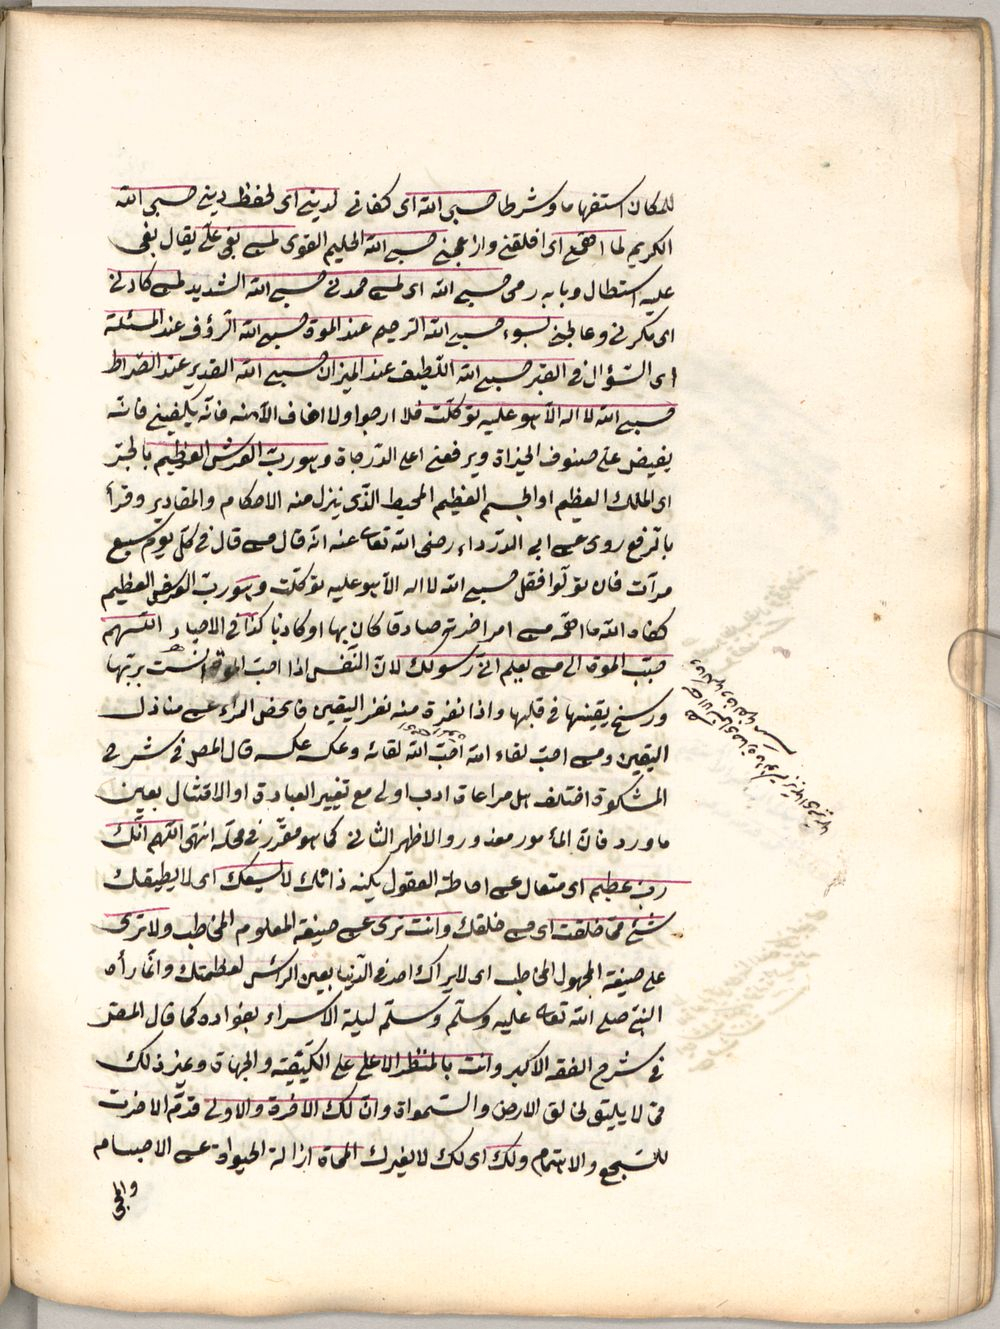 للمكان استفهاما وشرطا حسبى الله اى كفانى لدينى اى لحفظ دينى حسبى الله
الكريم لما اهمنى اى اقلقنى وازعجنى حسبى الله الحليم القوى لمن بغى على يقال بغى
عليه استطال وبابه رمى حسبى الله اى لمن حسدنى حسبى الله الشديد لمن كادنى
اى مكرنى وعالجنى بسوء حسبى الله الرحيم عند الموت حسبى الله الرؤف عند المسئلة
اى السؤال فى القبر حسبى الله اللطيف عند الميزان حسبى الله القدير عند الصراط
حسبى الله لا اله الا هو عليه توكلت فلا ارجوا ولا اخاف الا منه فانه يكفينى فانه
يفيض على صنوف الخيراة ويرفعنى اعلى الدرجاة وهو رب العرش العظيم بالجر
اى الملك العظيم او الجسم العظيم المحيط الذى ينزل منه الاحكام والمقادير وقرأ
بالرفع روى عن ابى الدرداء رضى الله تعالى عنه انه قال من قال فى كل يوم سبع
مرات فان تولوا فقل حسبى الله لا اله الا هو عليه توكلت وهو رب العرش العظيم
كفاه الله ما اهمه من امر اخرته صادقا كان بها او كاذبا كذا فى الاخبار اللهم
حبب الموت الى من يعلم انى رسولك لان النفس اذا احب الموت انست بربها
ورسخ يقينها فى قلبها واذا نفرة منه نفر اليقين فانحض المرء عن منازل
اليقين ومن احب لقاء الله احب الله لقائه وعكسه عكسه قال المص فى شرح
المشكوة اختلف هل مراعاة ادب اولى مع تغيير العبادة او الاقتتال بعين
ما ورد فان المأمور معذور والاظهر الثانى كما هو مقرر فى محله انتهى اللهم انك
رب عظيم اى متعال عن احاطة العقول بكنه ذاتك لا يسعك اى لا يطيقك
شئ مما خلقت اى من خلقك وانت ترى عن صيغة المعلوم المخاطب ولا ترى
على صيغة المجهول المخاطب اى لا يراك احد فى الدنيا بعين الرأس لعظمتك وانما رأه
النبى صلى الله تعالى عليه وسلم وسلم ليلة الاسراء بفؤاده كما قال المص
فى شرح الفقه الاكبر وانت بالمنظر الاعلى على الكيفية والجهاة وغير ذلك
مما لا يليق لخالق الارض والسموات وان لك الاخرة والاولى قدم الاخرت
للسجع والاهتمام ولك اى لك لا لغيرك المماة ازالة الحيواة عن الاجسام
والمحى